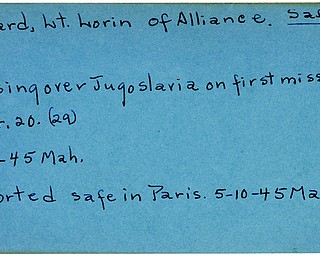 ard, Lt. Lorin of Alliance. Saf
sing over Jugoslavia on first miss
r. 20. (29)
-45 Mah.
orted safe in Paris. 5-10-45 Ma